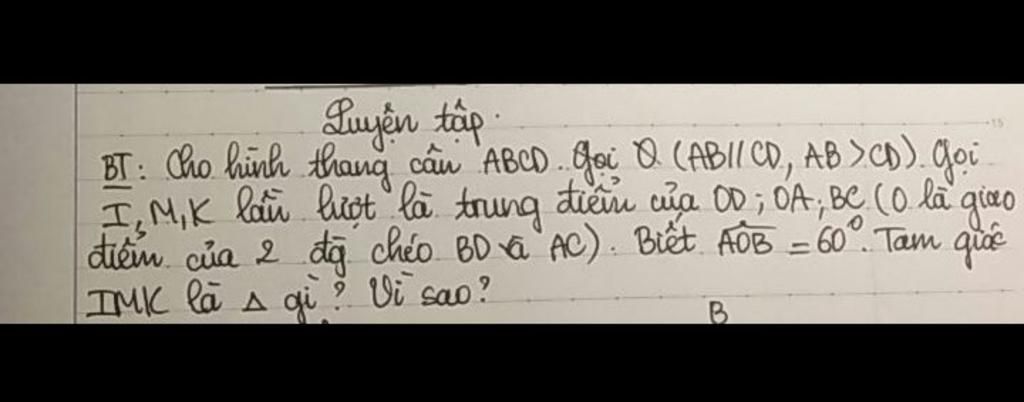 Luyện tập.
BT: Cho hình thang cân ABCD. Gọi (AB//CD, AB > CD). Gọi
I, M, K lần lượt là trung điểm của OD; OA; BC (O là giao
điểm của 2 đg chéo BD và AC). Biết AOB = 60°. Tam giác
IMK là Δ gì? Vì sao?
B